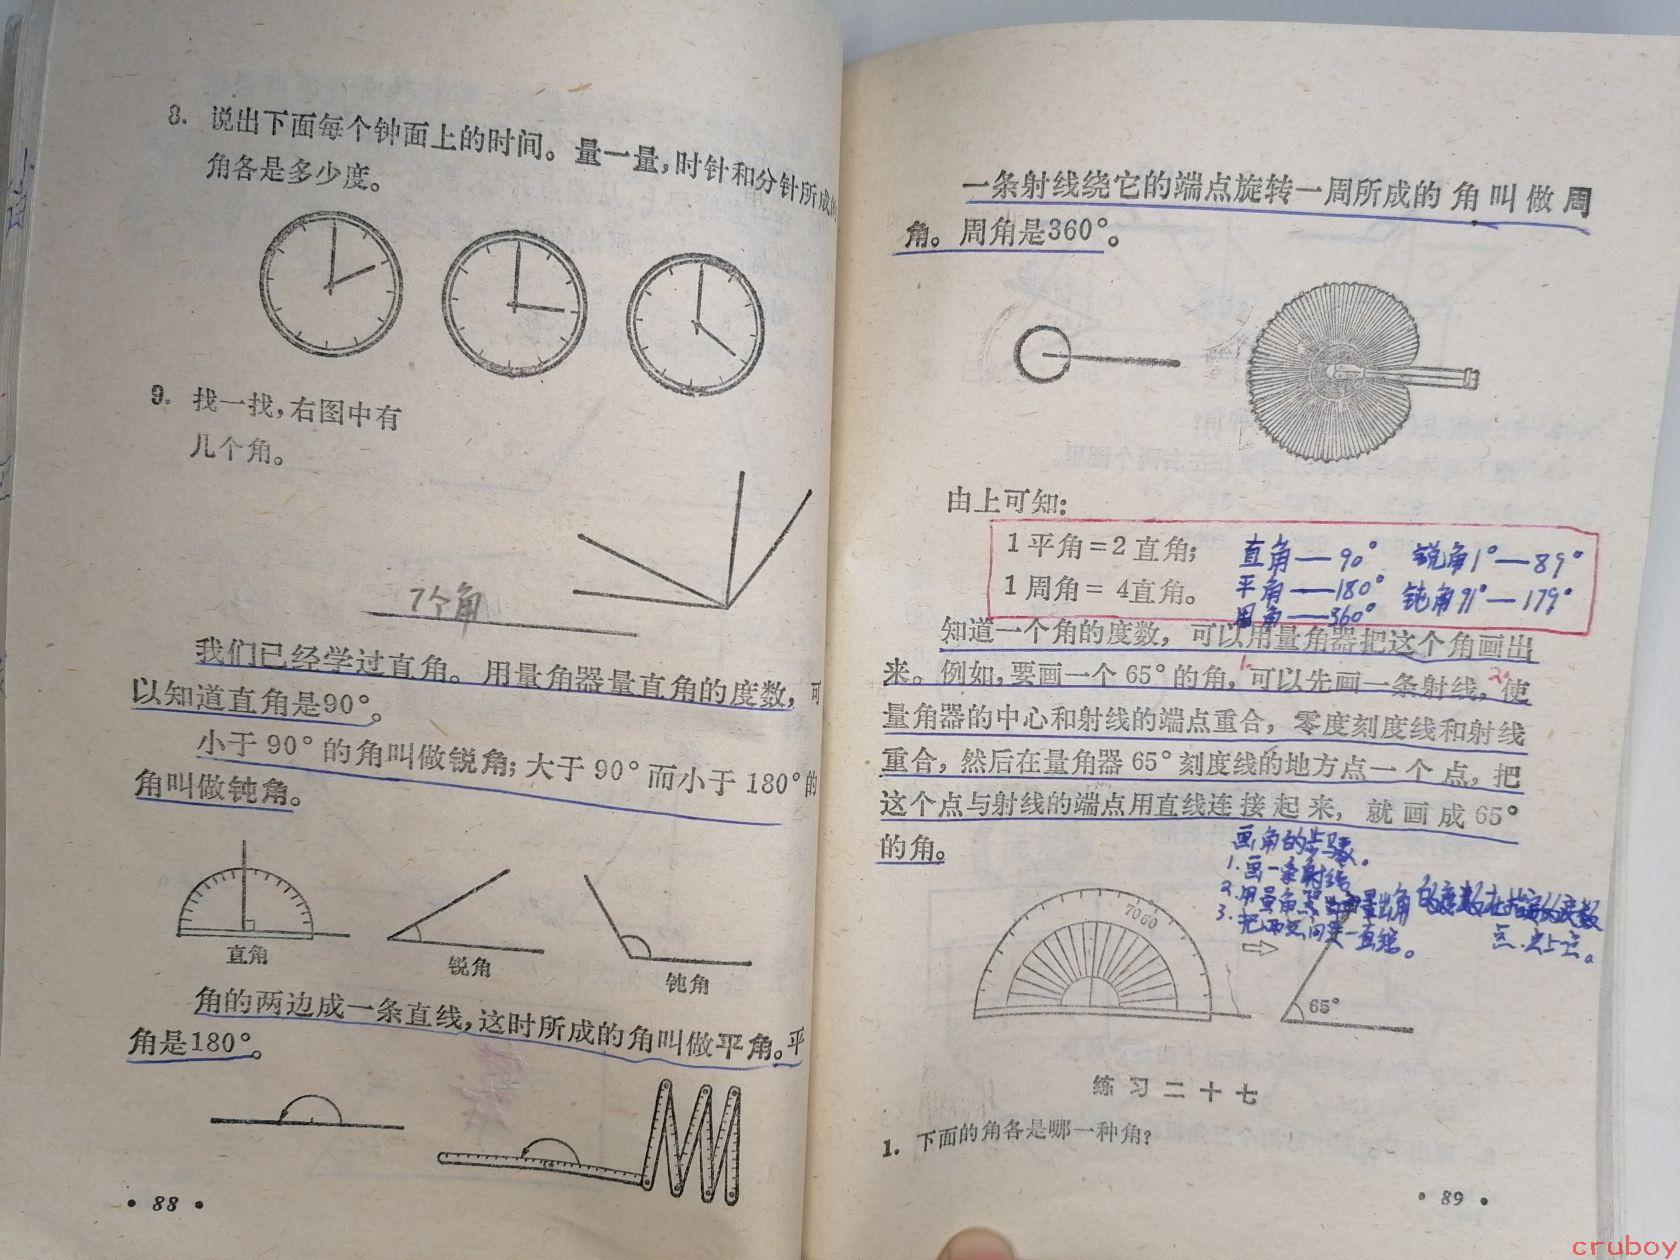 8. 说出下面每个钟面上的时间。量一量,时针和分针所成的
角各是多少度。
9. 找一找,右图中有
几个角。
7个角
我们已经学过直角。用量角器量直角的度数,可
以知道直角是90°。
小于90°的角叫做锐角;大于90°而小于180°的
角叫做钝角。
直角
锐角
钝角
角的两边成一条直线,这时所成的角叫做平角。平
角是180°。
• 88 •
一条射线绕它的端点旋转一周所成的角叫做周
角。周角是360°。
由上可知:
1平角=2直角; 直角—90° 锐角1°—89°
1周角=4直角。 平角—180° 钝角91°—179°
周角—360°
知道一个角的度数,可以用量角器把这个角画出
来。例如,要画一个65°的角,可以先画一条射线,使
量角器的中心和射线的端点重合,零度刻度线和射线
重合,然后在量角器65°刻度线的地方点一个点,把
这个点与射线的端点用直线连接起来,就画成65°
的角。
画角的步骤。
1.画一条射线
2.用量角器量出角的度数在指定的度数
点上点。
3.把两点间连一直线。
70 60
65°
练习二十七
1. 下面的角各是哪一种角?
• 89 •
cruboy